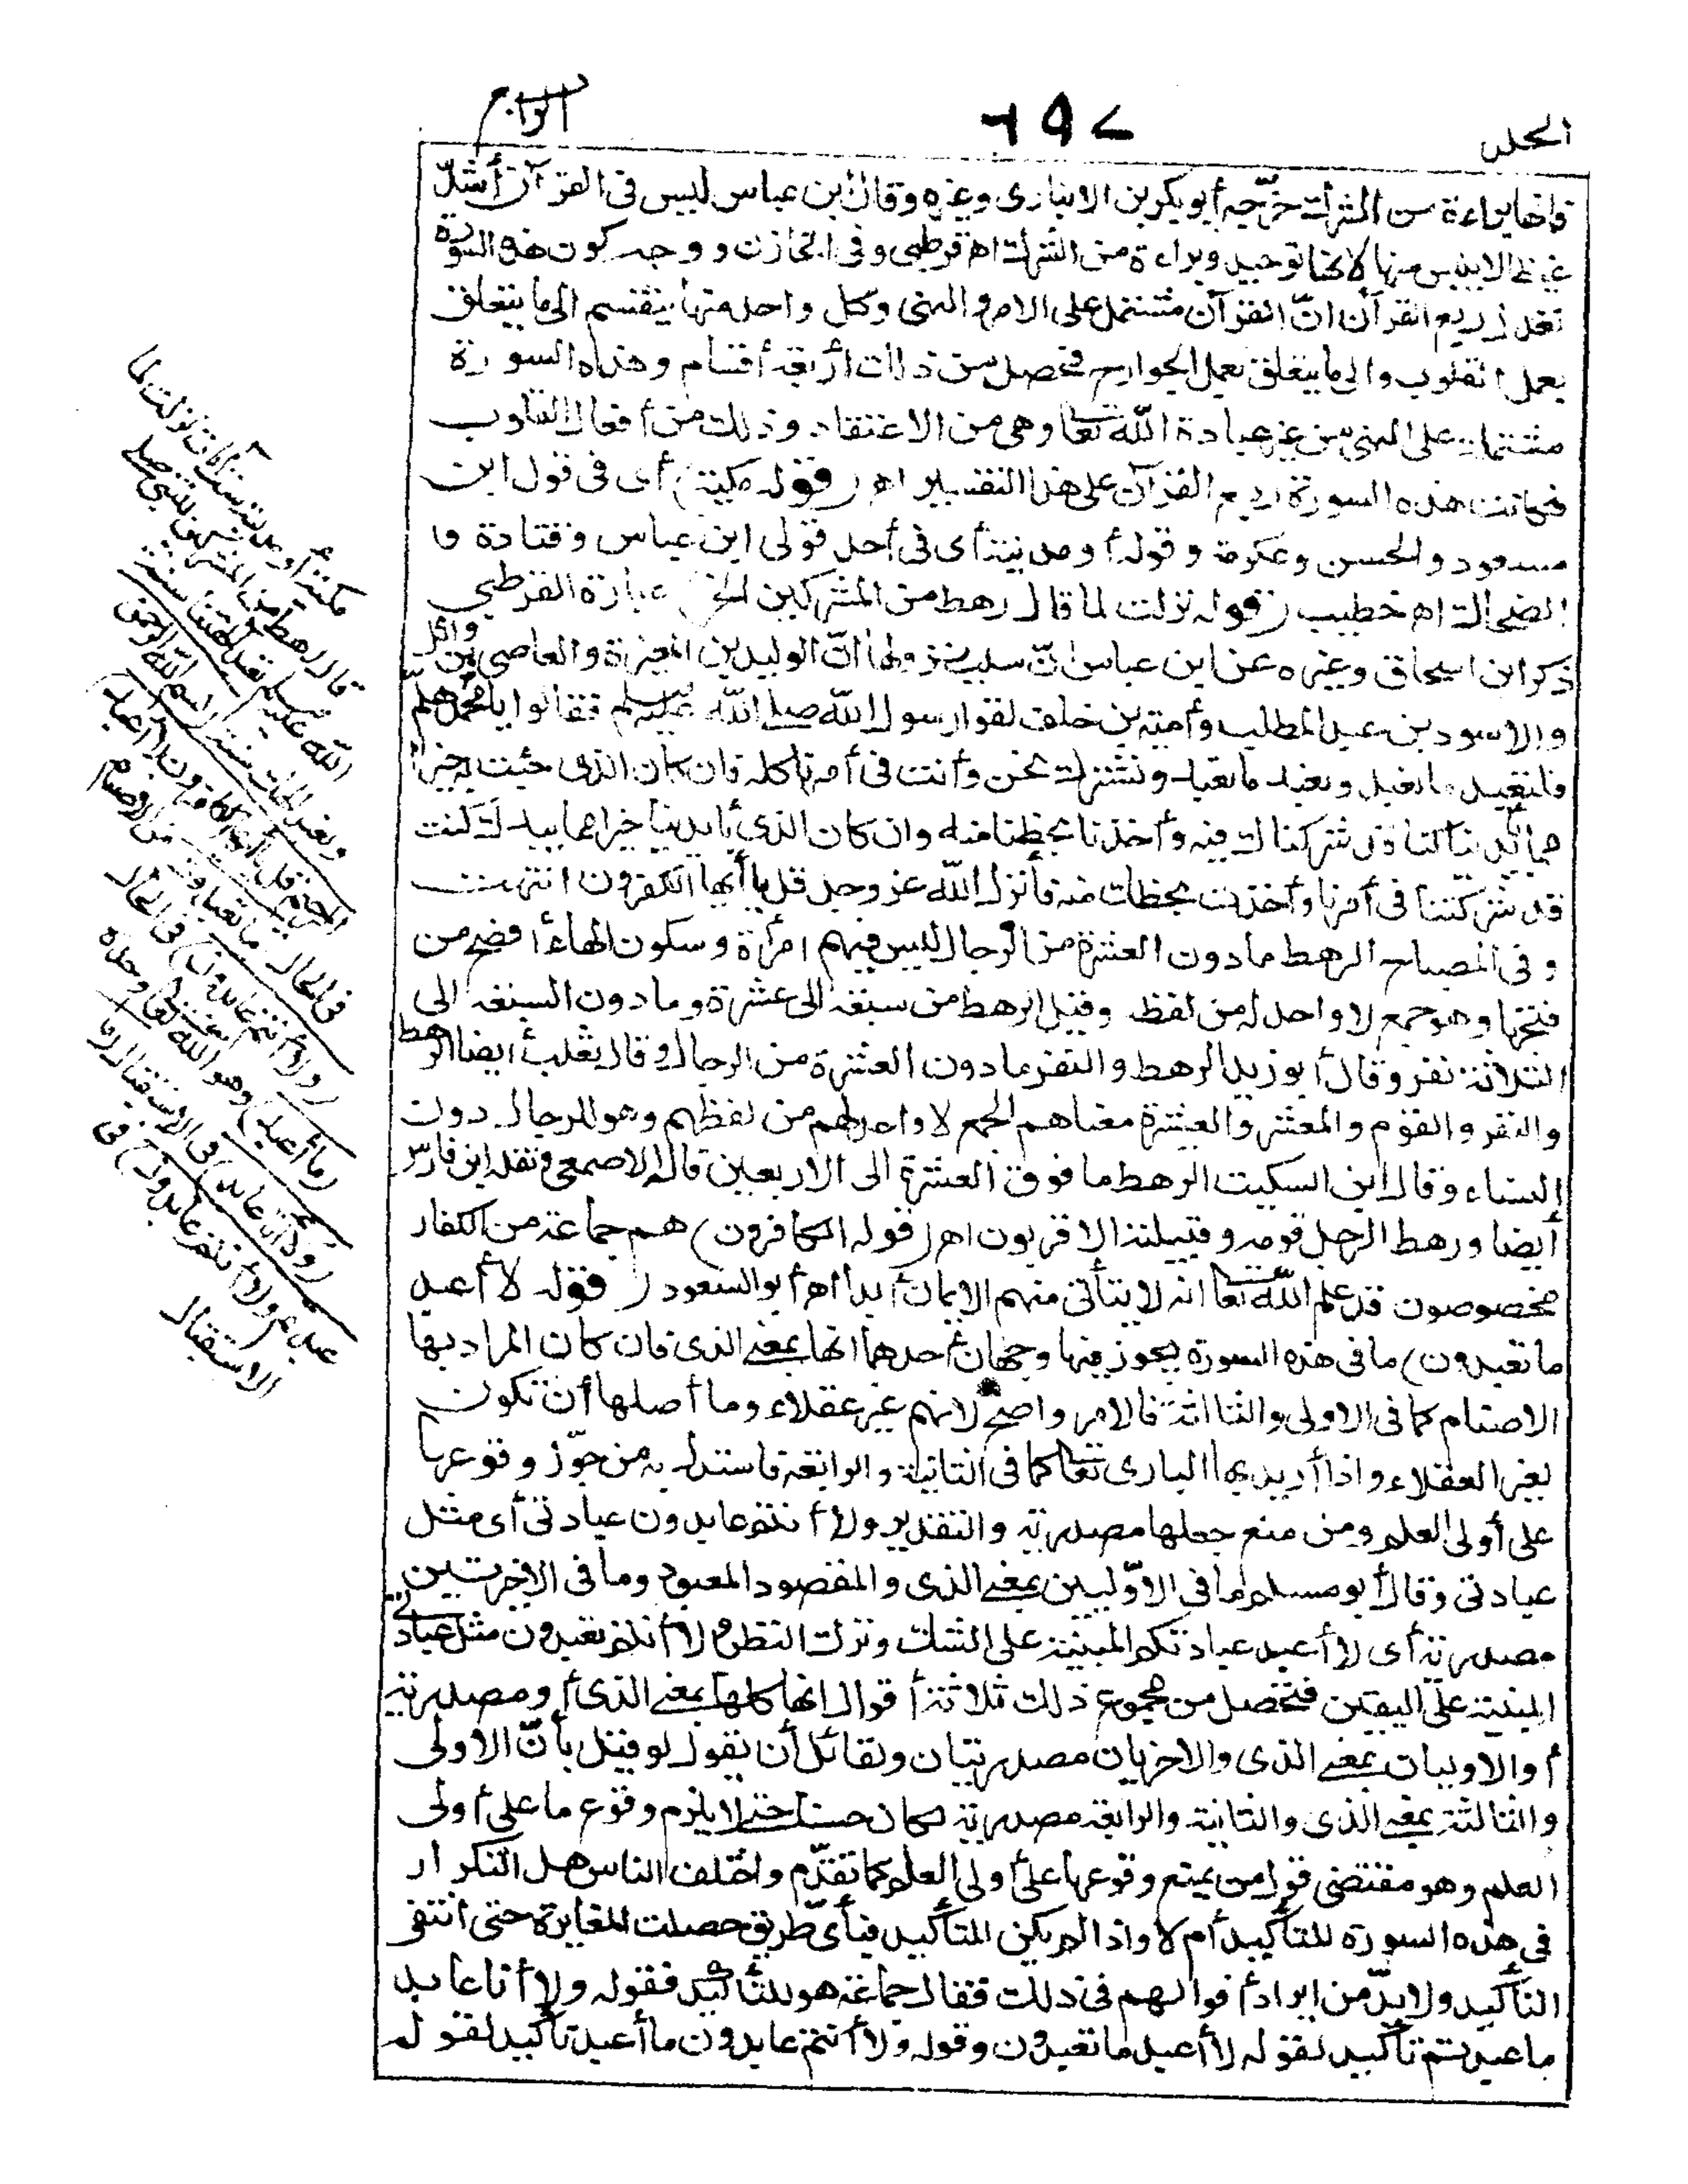 الجلد
٦٩٧
الرابع
فانها براءة من الشرك خرّجه أبو بكر بن الانبارى وغيره وقال ابن عباس ليس فى القرآن أشدّ
غيظا لابليس منها لانها توحيد وبراءة من الشرك اهـ قرطبى وفى الخازن ووجه كون هذه السورة
تعدل ربع القرآن انّ القرآن مشتمل على الامر والنهى وكل واحد منها ينقسم الى ما يتعلق
بعمل القلوب والى ما يتعلق بعمل الجوارح فحصل من ذلك أربعة أقسام وهذه السورة
مشتملة على النهى عن غير عبادة الله تعا وهى من الاعتقاد وذلك من أفعال القلوب
فكانت هذه السورة ربع القرآن على هذا التقسير اهـ (قوله مكية) أى فى قول ابن
مسعود والحسن وعكرمة وقوله أو مدنية أى فى أحد قولى ابن عباس وقتادة و
الضحاك اهـ خطيب (قوله نزلت لما قال رهط من المشركين الخ) عبارة القرطبى
ذكر ابن اسحاق وغيره عن ابن عباس انّ سبب نزولها انّ الوليد بن المغيرة والعاصى بن وائل
والاسود بن عبد المطلب وأمية بن خلف لقوا رسول الله صلى الله عليه وسلم فقالوا يا محمد هلم
فلنعبد ما تعبد وتعبد ما نعبد ونشترك نحن وأنت فى أمرنا كله فان كان الذى جئت به خيرا
مما بأيدينا كنا قد شركناك فيه وأخذنا بحظنا منه وان كان الذى بأيدينا خيرا مما بيدك كنت
قد شركتنا فى أمرنا وأخذت بحظك منه فأنزل الله عز وجل قل يا أيها الكفرون انتهت
وفى المصباح الرهط ما دون العشرة من الرجال ليس فيهم امرأة وسكون الهاء أفصح من
فتحها وهو جمع لا واحد له من لفظه وقيل الرهط من سبعة الى عشرة وما دون السبعة الى
الثلاثة نفر وقال أبو زيد الرهط والنفر ما دون العشرة من الرجال وقال ثعلب أيضا الرهط
والنفر والقوم والمعشر والعشرة معناهم الجمع لا واحد لهم من لفظهم وهو للرجال دون
النساء وقال ابن السكيت الرهط ما فوق العشرة الى الاربعين قاله الاصمعى ونقله ابن فارس
أيضا ورهط الرجل قومه وقبيلته الاقربون اهـ (قوله الكافرون) هم جماعة من الكفار
مخصوصون قد علم الله تعا انه لا يتأتى منهم الايمان أبدا اهـ أبو السعود (قوله لا أعبد
ما تعبدون) ما فى هذه السورة يجوز فيها وجهان أحدهما انها بمعنى الذى فان كان المراد بها
الاصنام كما فى الاولى والثالثة فالامر واضح لانهم غير عقلاء وما أصلها أن تكون
لغير العقلاء واذا أريد بها البارى تعا كما فى الثانية والرابعة فاستدل به من جوّز وقوعها
على أولى العلم ومن منع جعلها مصدرية والتقدير ولا أنتم عابدون عبادتى أى مثل
عبادتى وقال أبو مسلم ما فى الاوّليين بمعنى الذى والمقصود المعبود وما فى الاخرتين
مصدرية أى لا أعبد عبادتكم المبنية على الشك وترك النظر ولا أنتم تعبدون مثل عبادتى
المبنية على اليقين فتحصل من مجموع ذلك ثلاثة أقوال انها كلها بمعنى الذى أو مصدرية
أو الاوليان بمعنى الذى والاخريان مصدريتان ولقائل أن يقول لو قيل بأنّ الاولى
والثالثة بمعنى الذى والثانية والرابعة مصدرية لكان حسنا حتى لا يلزم وقوع ما على أولى
العلم وهو مقتضى قول من يمنع وقوعها على أولى العلم كما تقدّم واختلف الناس هل التكرار
فى هذه السورة للتأكيد أم لا واذا لم يكن للتأكيد فبأىّ طريق حصلت المغايرة حتى انتفى
التأكيد ولا بدّ من ايراد أقوالهم فى ذلك فقال جماعة هو للتأكيد فقوله ولا أنا عابد
ما عبدتم تأكيد لقوله لا أعبد ما تعبدون وقوله ولا أنتم عابدون ما أعبد تأكيد لقوله
مكية أو مدنية ست آيات نزلت لما
قال رهط من المشركين للنبى صلى
الله عليه وسلم تعبد آلهتنا سنة
ونعبد الهك سنة (بسم الله الرحمن
الرحيم قل يا أيها الكافرون لا أعبد)
فى الحال (ما تعبدون) من الاصنام
(ولا أنتم عابدون) فى الحال
(ما أعبد) وهو الله تعا وحده
(ولا أنا عابد) فى الاستقبال (ما
عبدتم ولا أنتم عابدون) فى
الاستقبال